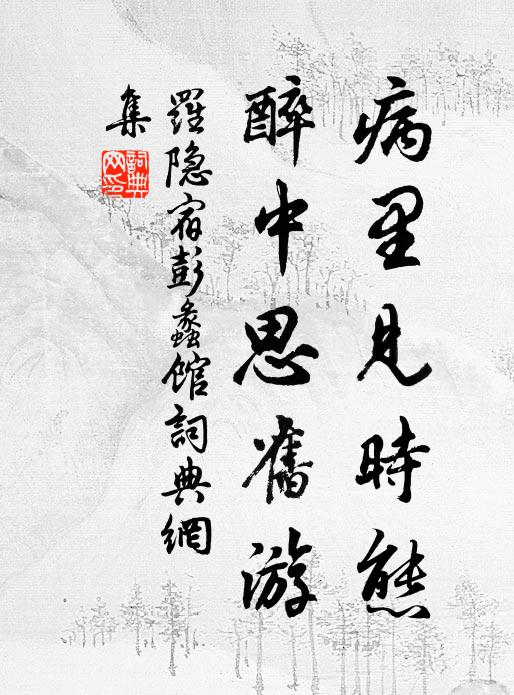 病里見時態
醉中思舊游
羅隐宿彭蠡館詞典網
集
詞典网印